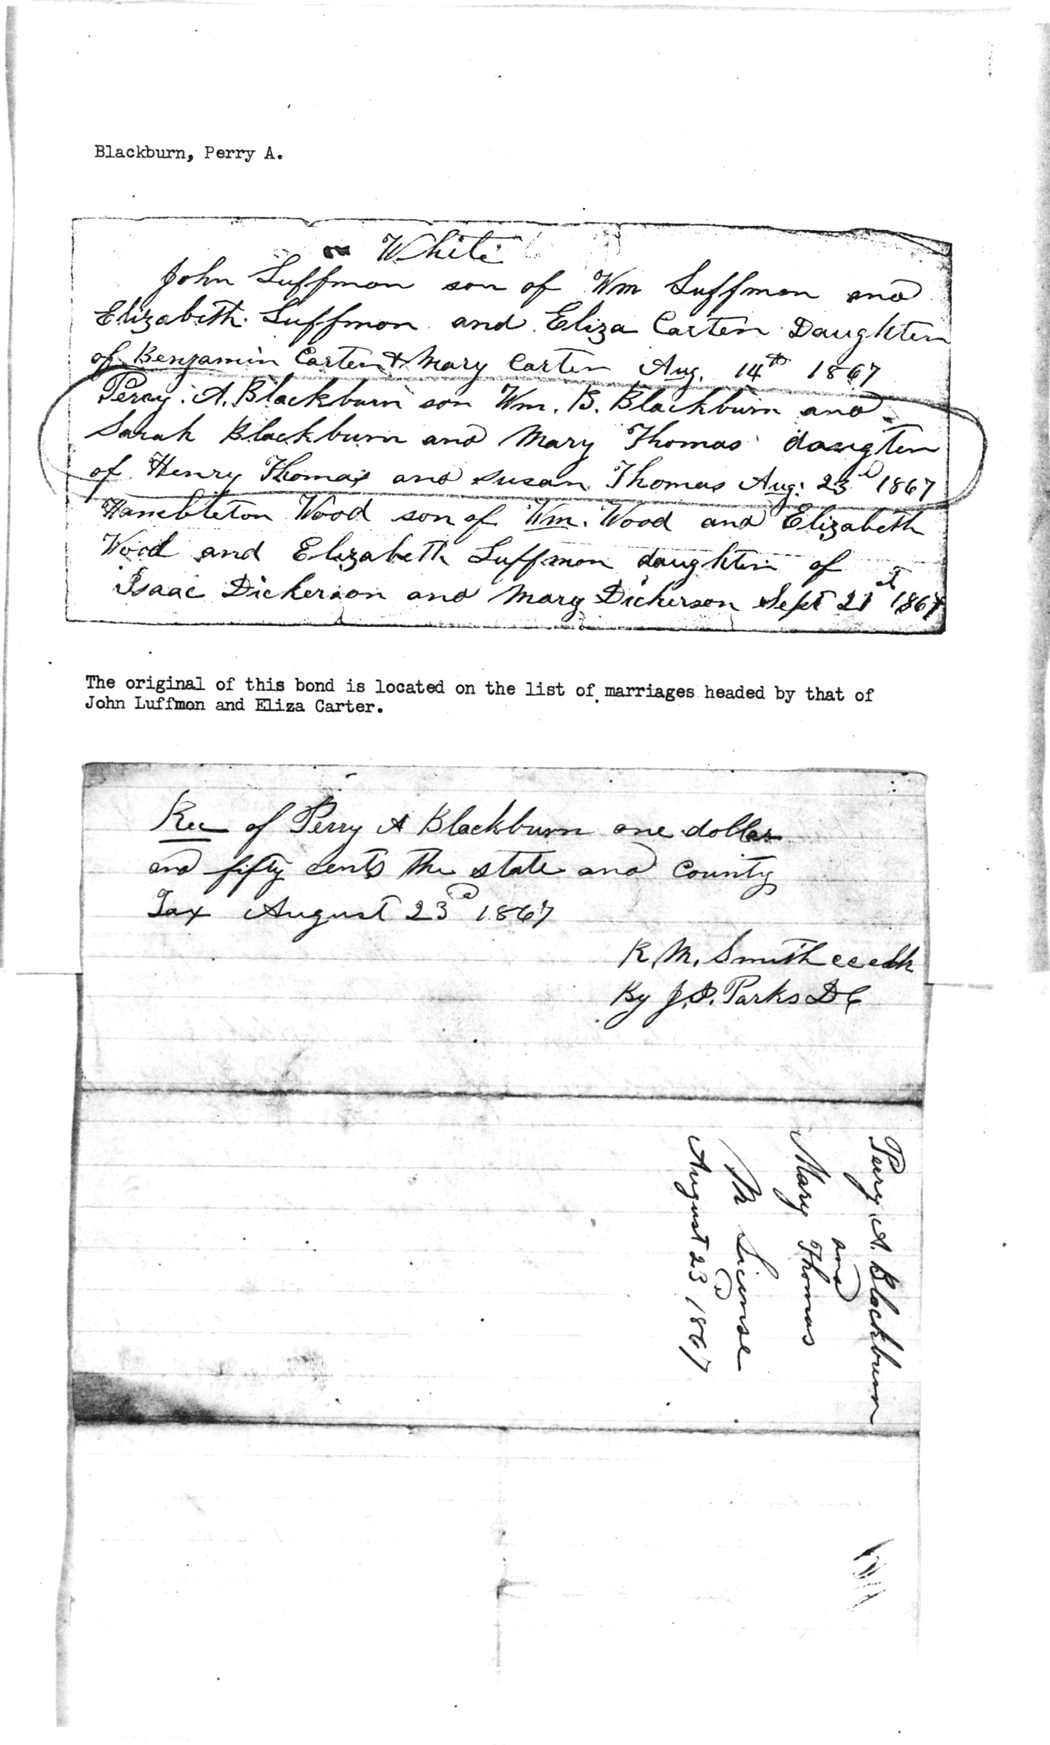 Blackburn, Perry A.
White
John Luffmon son of Wm Luffmon and
Elizabeth Luffmon and Eliza Carter Daughter
of Benjamin Carter & Mary Carter Aug. 14th 1867
Perry. A. Blackburn son Wm. B. Blackburn and
Sarah Blackburn and Mary Thomas daugter
of Henry Thomas and Susan Thomas Aug. 23d 1867
Hambleton Wood son of Wm. Wood and Elizabeth
Wood and Elizabeth Luffmon daughter of
Isaac Dickerson and Mary Dickerson Sept 21st 1867
The original of this bond is located on the list of marriages headed by that of
John Luffmon and Eliza Carter.
Rec of Perry A Blackburn one dollar
and fifty cents the state and County
Tax August 23d 1867
R. M. Smith
By J. S. Parks D C
Perry A. Blackburn
and
Mary Thomas
M License
August 23d 1867